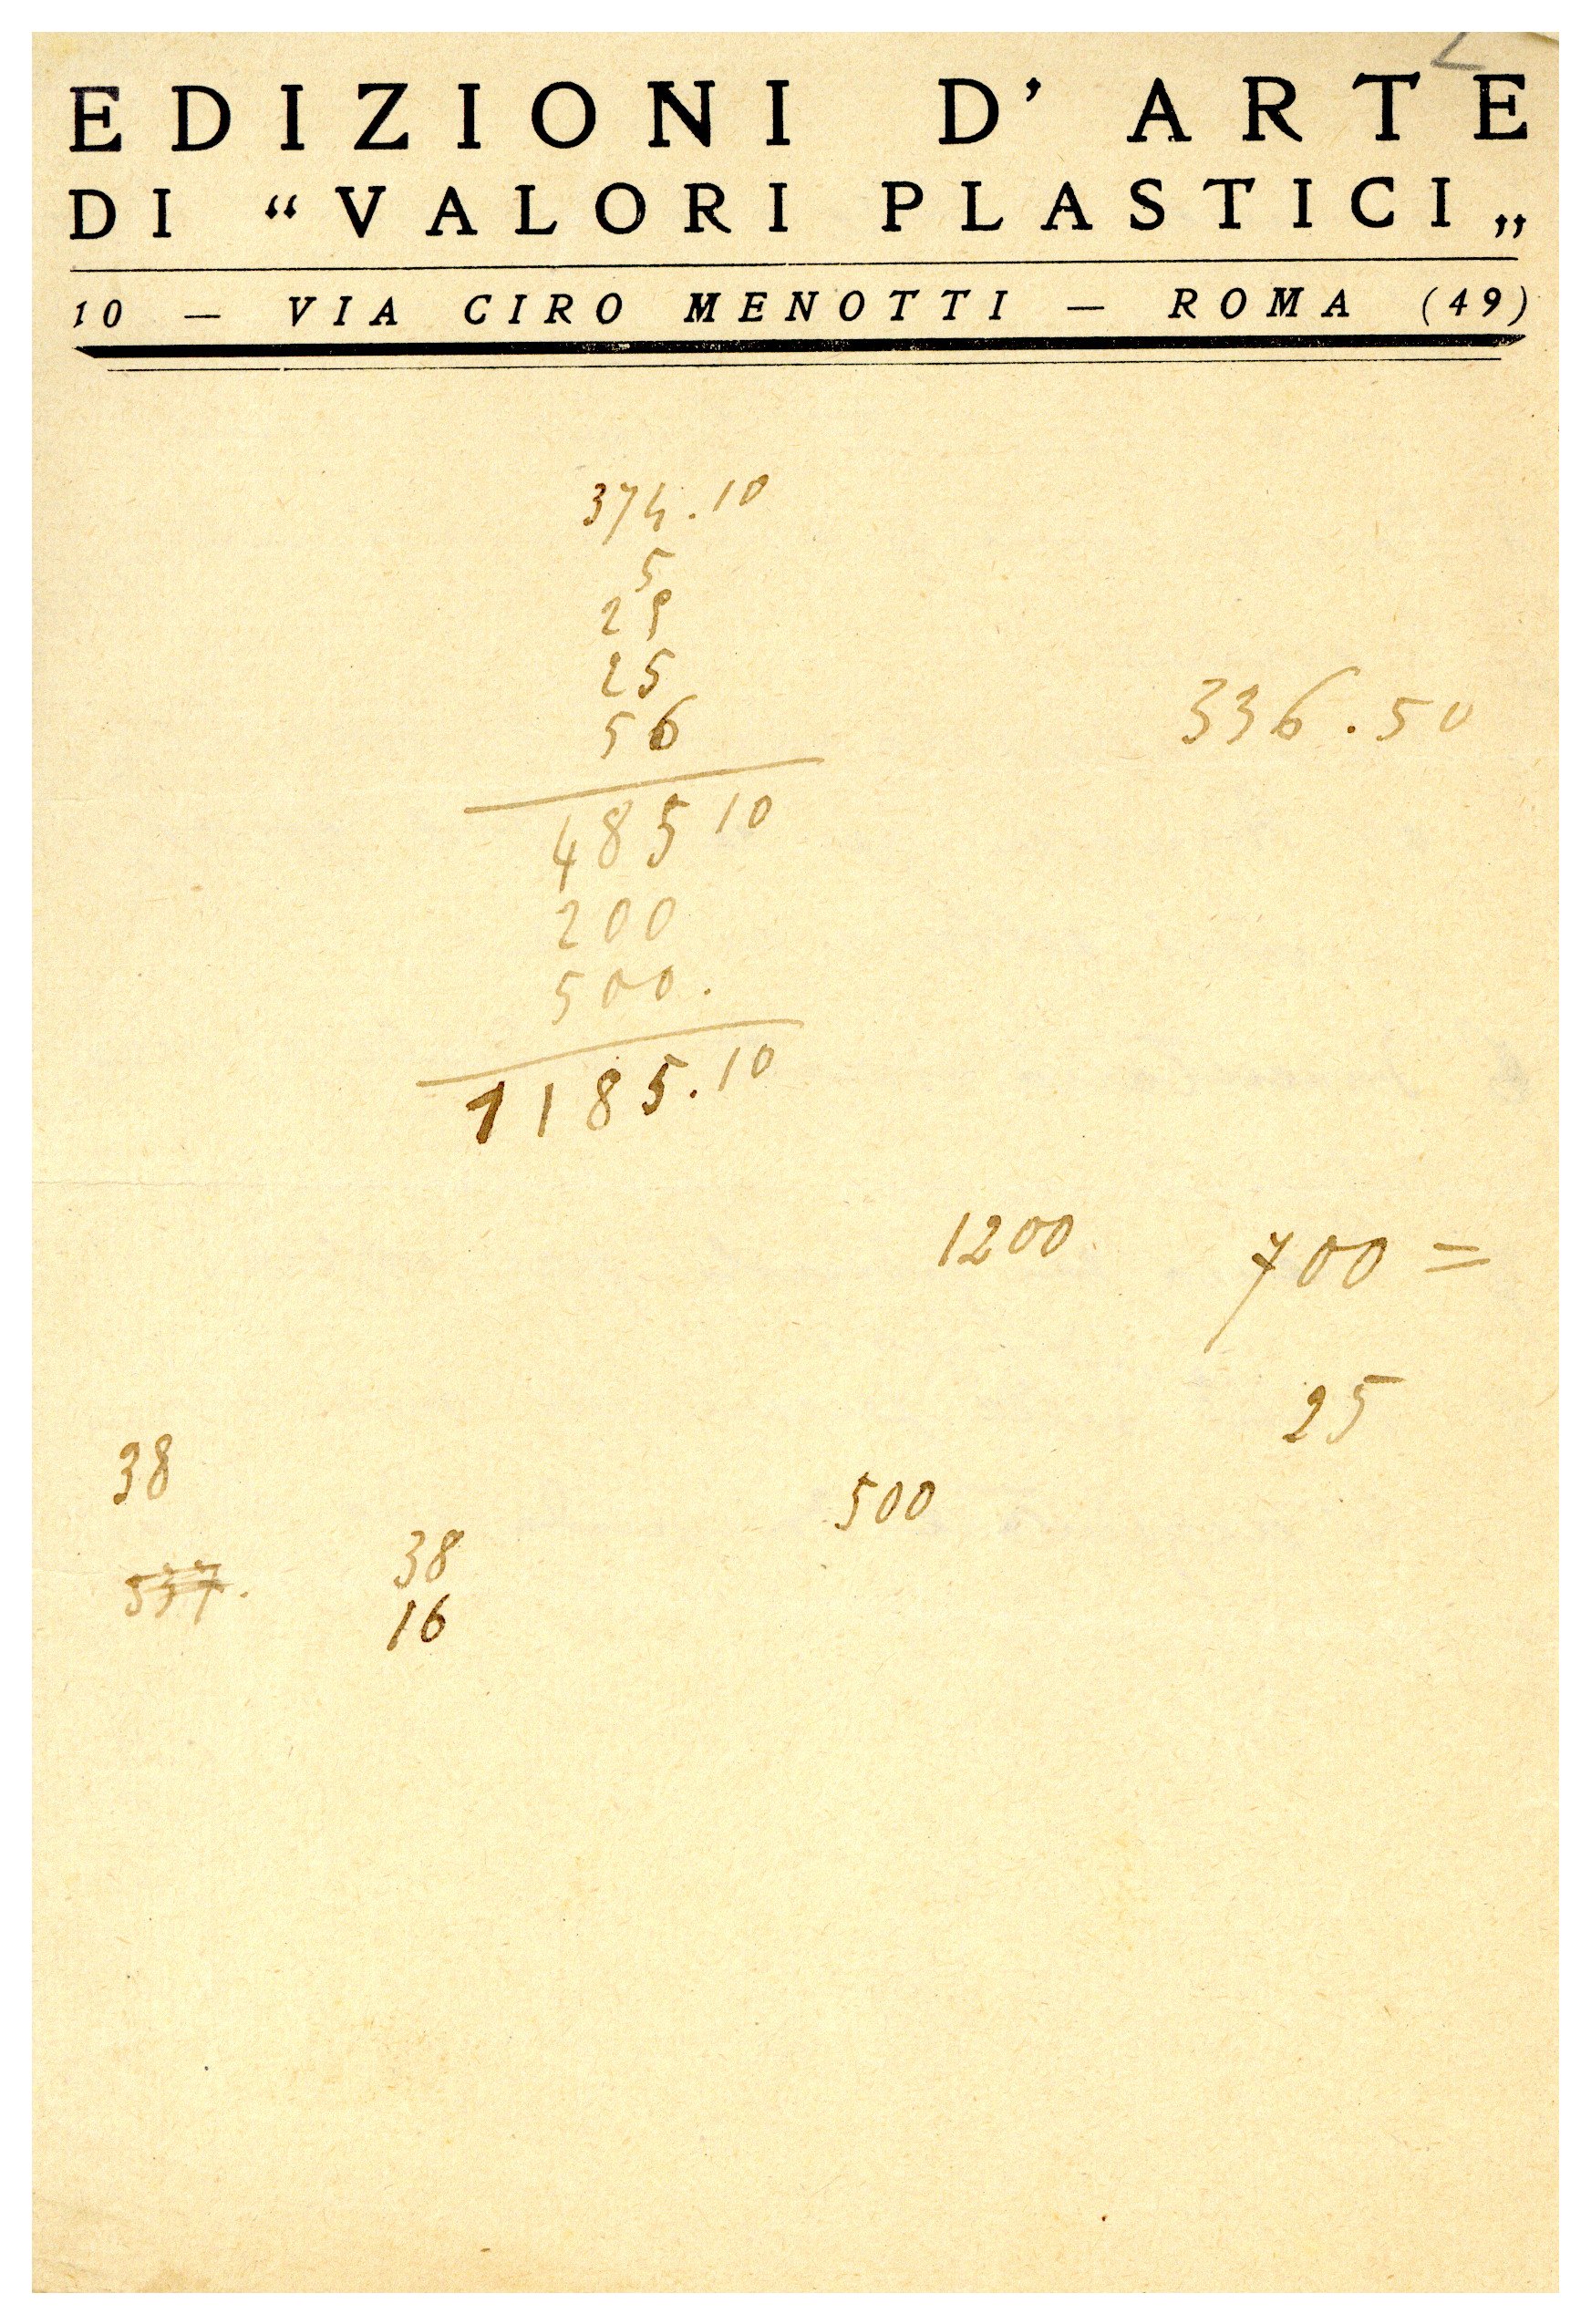 EDIZIONI D'ARTE
DI “VALORI PLASTICI„
10 — VIA CIRO MENOTTI — ROMA (49)
374.10
5
25
25
56
336.50
485 10
200
500.
1185.10
1200
700 =
25
38
500
38
537.
16